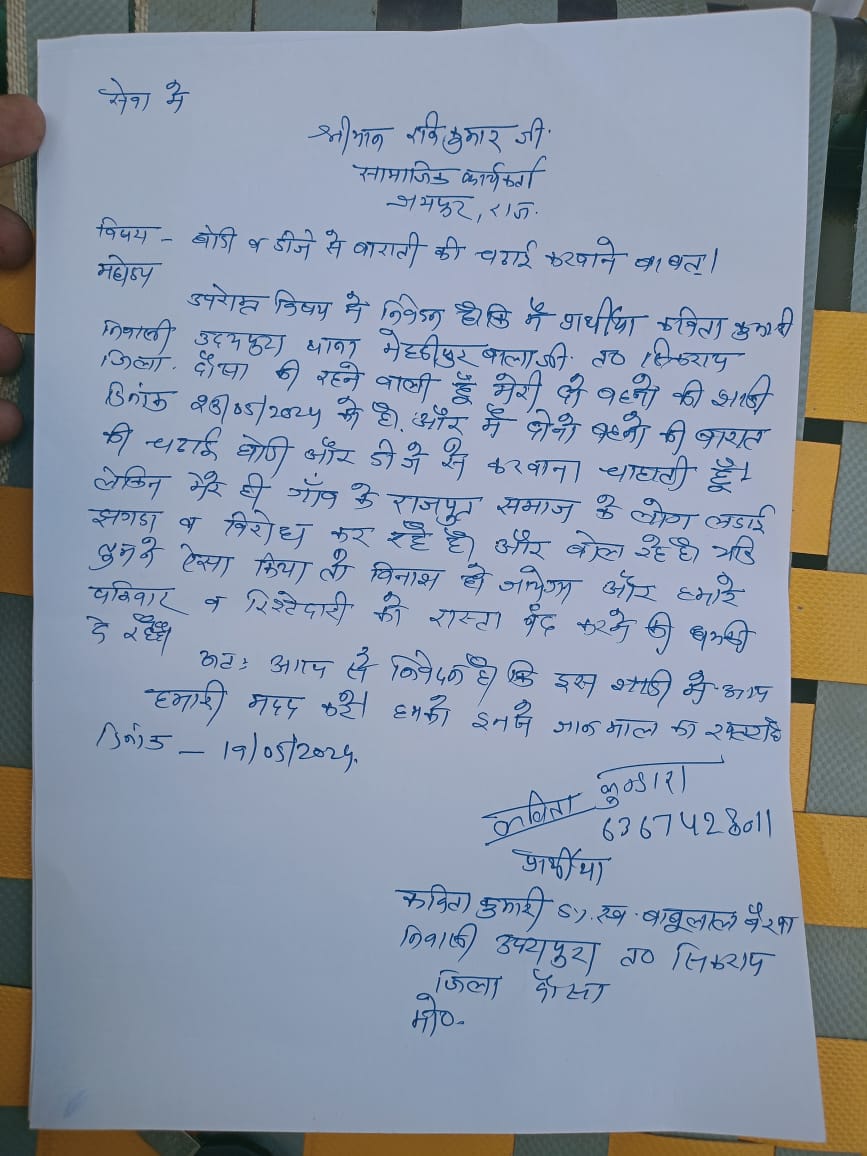 सेवा में
श्रीमान रविकुमार जी.
सामाजिक कार्यकर्ता
जयपुर, राज.
विषय - घोडी व डीजे से बाराती की चढाई करवाने बाबत्।
महोदय
उपरोक्त विषय में निवेदन है कि मैं प्रार्थीया कविता कुमारी
निवासी उदयपुरा थाना मेहंदीपुर बालाजी. त० सिकराय
जिला. दौसा की रहने वाली हूँ मेरी दो बहनो की शादी
दिनांक /05/2025 को है. और मैं दोनो बहनो की बारात
की चढाई घोडी और डीजे से करवाना चाहाती हूँ।
लेकिन मेरे ही गाँव के राजपूत समाज के लोग लडाई
झगडा व विरोध कर रहे है। और बोल रहे है। यदि
तुमने ऐसा किया तो विनाश हो जायेगा और हमारे
परिवार व रिश्तेदारो को रास्ता बंद करने की धमकी
दे रहे है।
अतः आप से निवेदन है कि इस शादी में आप
हमारी मदद करे। हमको इनसे जान माल का खतरा है
दिनांक - 19/05/2025.
कविता कुमारी
6367428011
प्रार्थीया
कविता कुमारी D/. स्व. बाबूलाल बैरवा
निवासी उदयपुरा त० सिकराय
जिला दौसा
मो०-